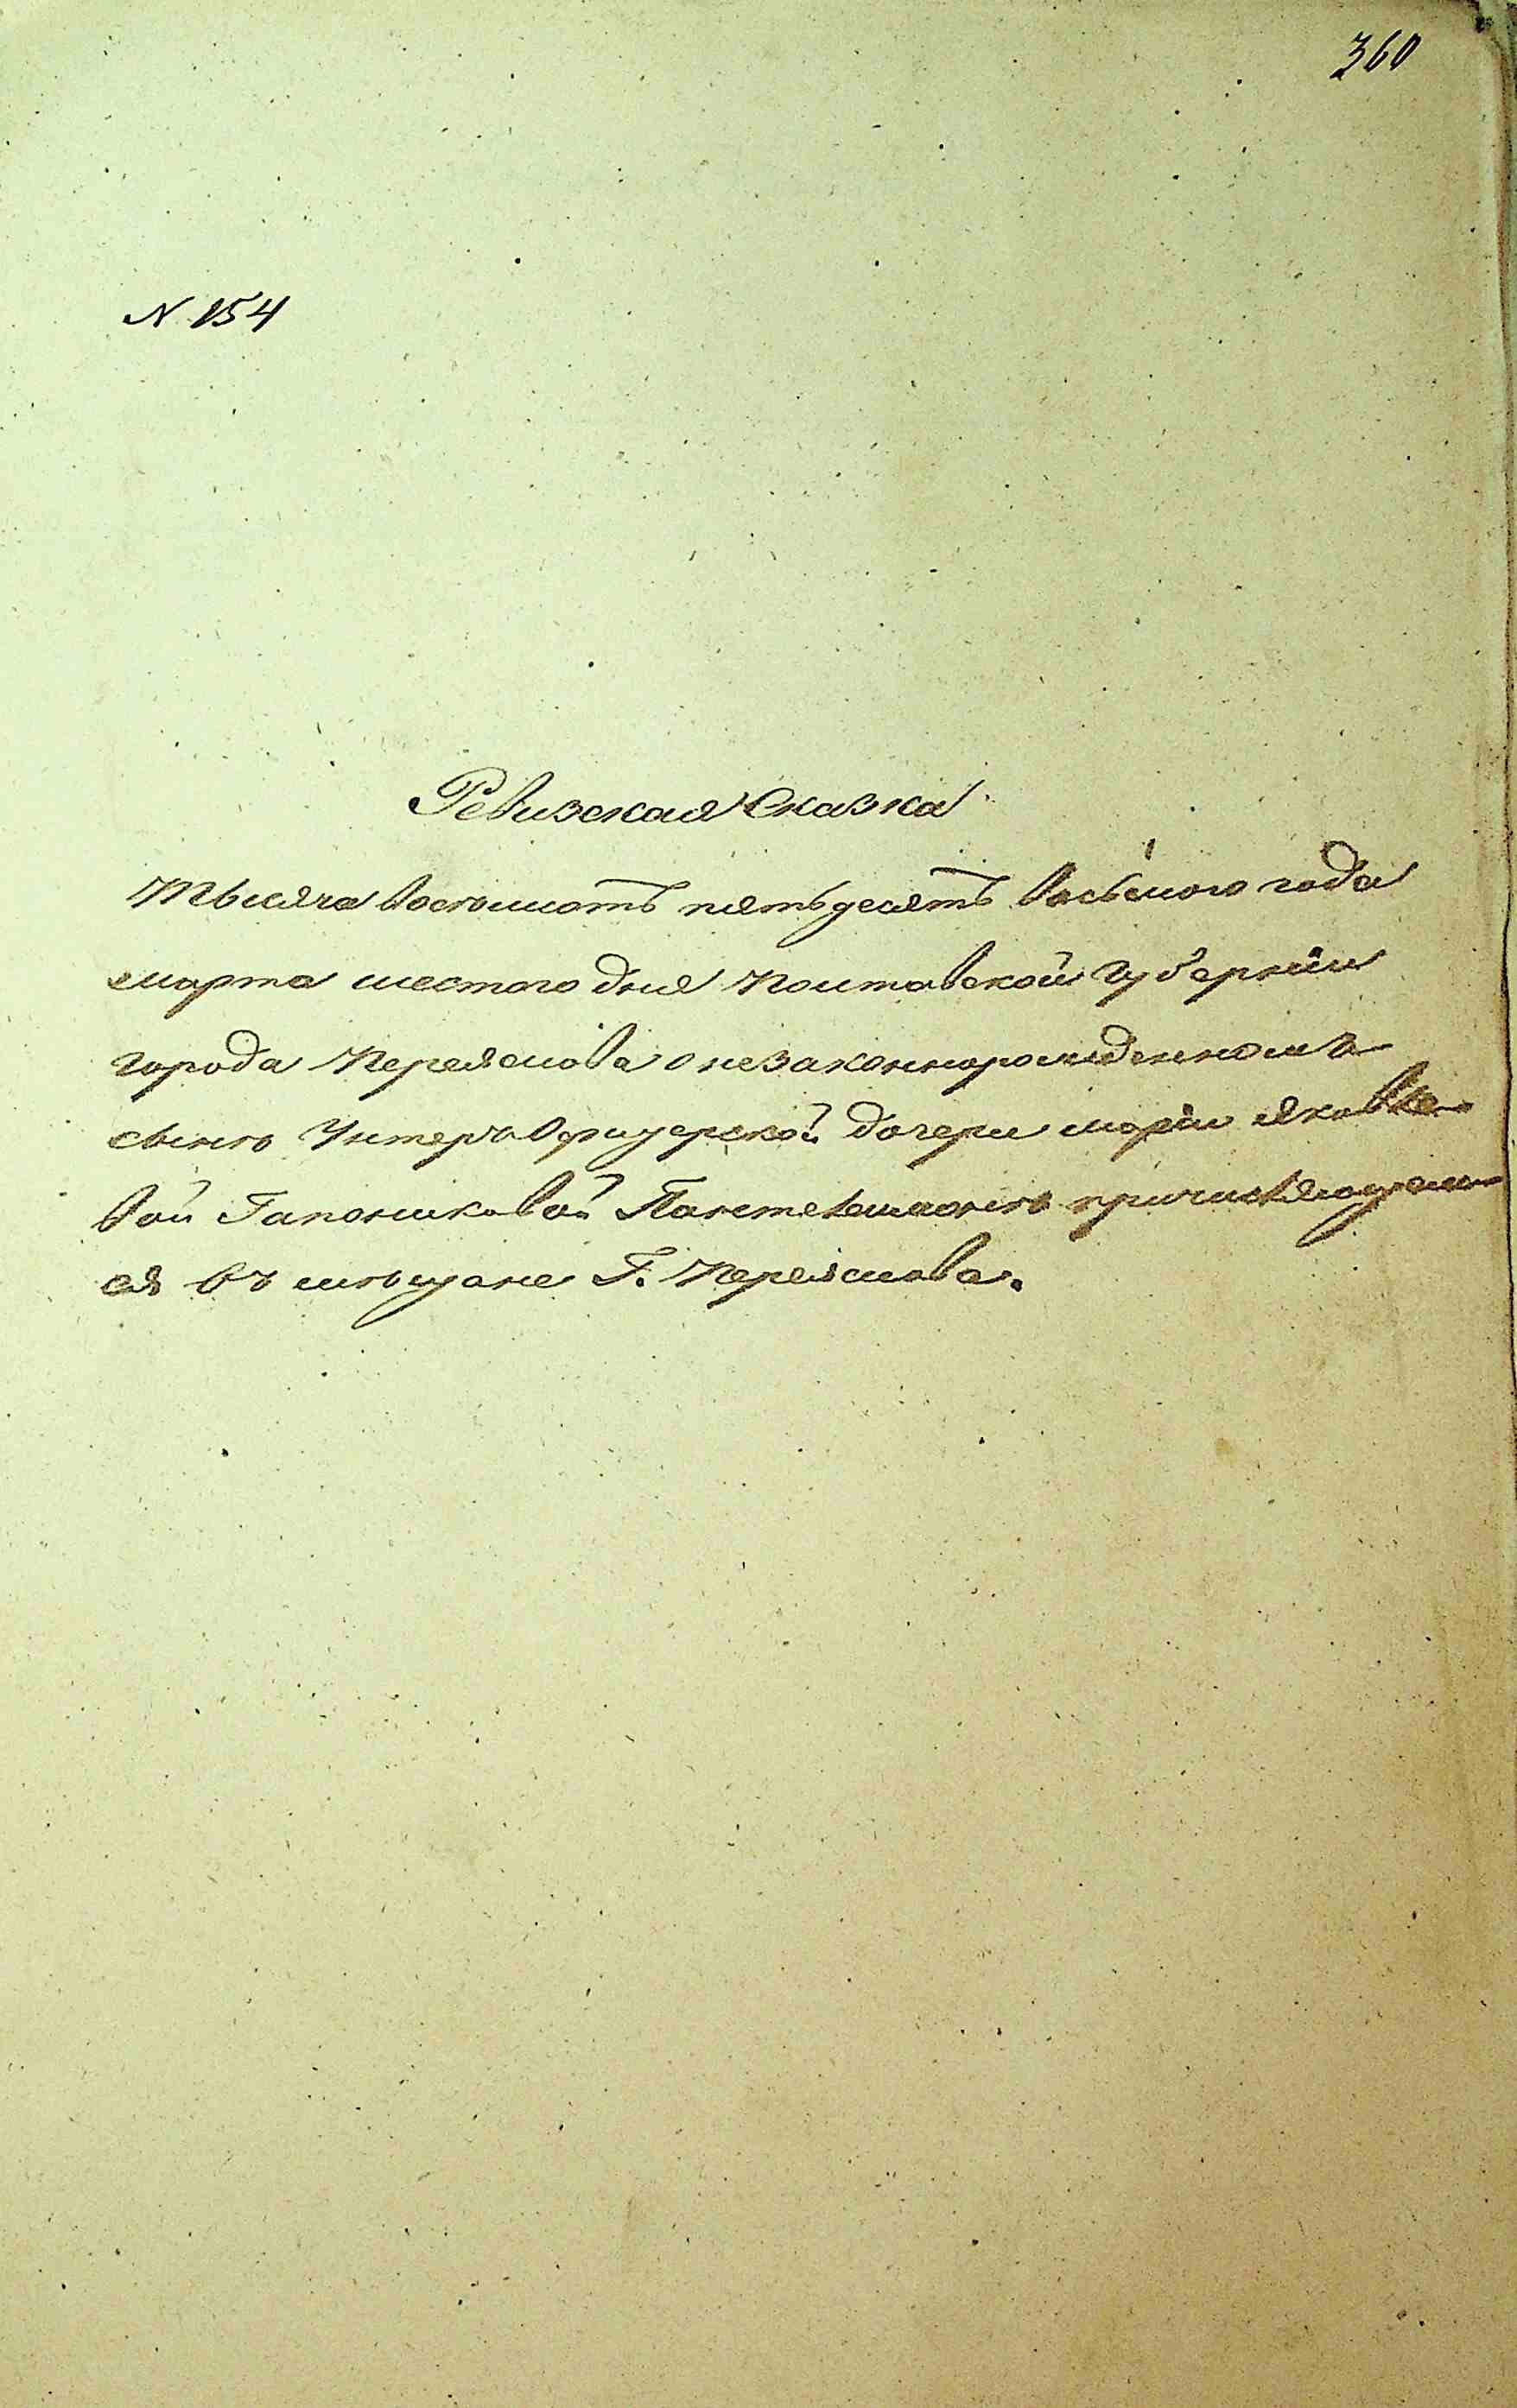 360
N 154
Ревизская Сказка
Тысяча восѣмсотъ пятьдесятъ восьмого года
марта шестого дня Полтавской Губерніи
города Переяслова о незаконнорожденномъ
сынѣ Унтеръ Офицерской дочери маріи яковле-
вой Гапониковой Пантелимонѣ причисляющем-
ся въ мѣщане Г. Переяслова.